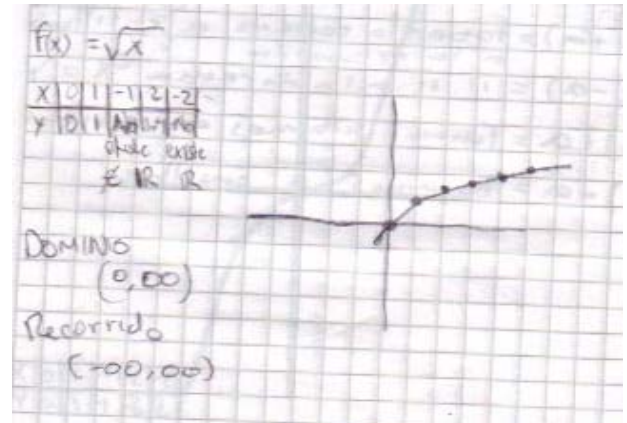 f(x) = √x
x | 0 | 1 | -1 | 2 | -2
y | 0 | 1 | No | | No
existe
∉ ℝ ℝ
DOMINIO
(0, ∞)
Recorrido
(-∞, ∞)